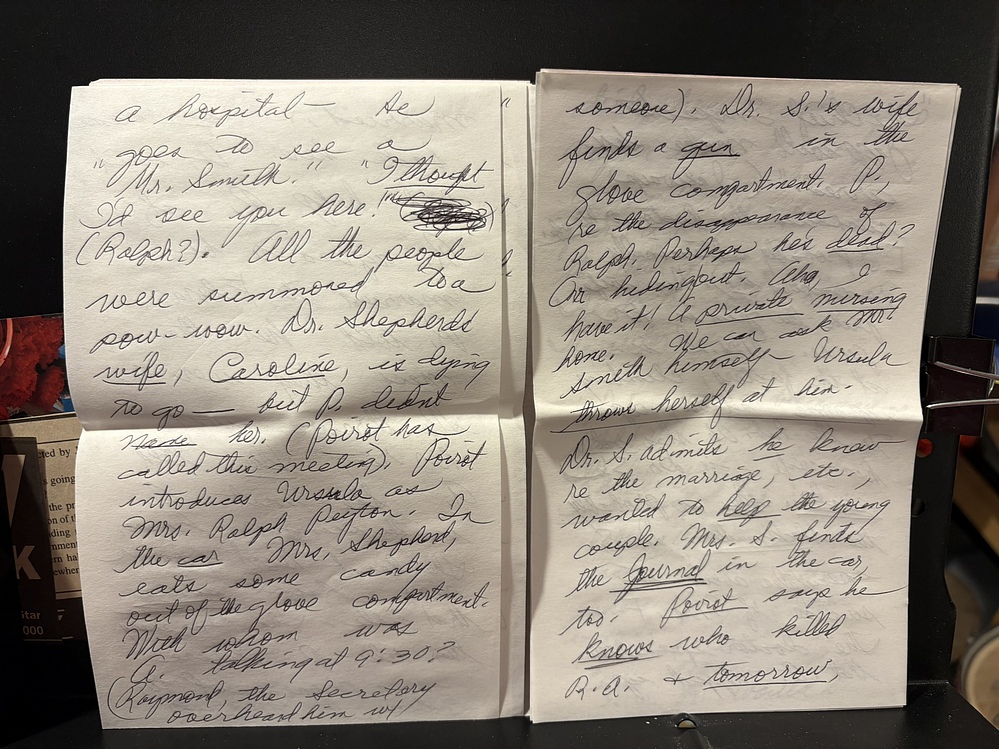 a hospital — He
"goes to see a
Mr. Smith." "I thought
I'd see you here."
(Ralph?). All the people
were summoned to a
pow-wow. Dr. Shepherds
wife, Caroline, is dying
to go — but P. didn't
her. (Poirot has
called this meeting). Poirot
introduces Ursula as
Mrs. Ralph Peyton. In
the car Mrs. Shepherd,
eats some candy
out of the glove compartment.
With whom was
A. talking at 9:30?
(Raymond, the Secretary
overheard him w/
someone). Dr. S.'s wife
finds a gun in the
glove compartment. P.,
re the disappearance of
Ralph. Perhaps he's dead?
Or hiding out. Aha, I
have it! A private nursing
home. We can ask Mr.
Smith himself — Ursula
throws herself at him.
Dr. S. admits he know
re the marriage, etc.,
wanted to help the young
couple. Mrs. S. finds
the Journal in the car,
too. Poirot says he
knows who killed
R.A. + tomorrow,
cted by
s going
the pr
K
Star
000